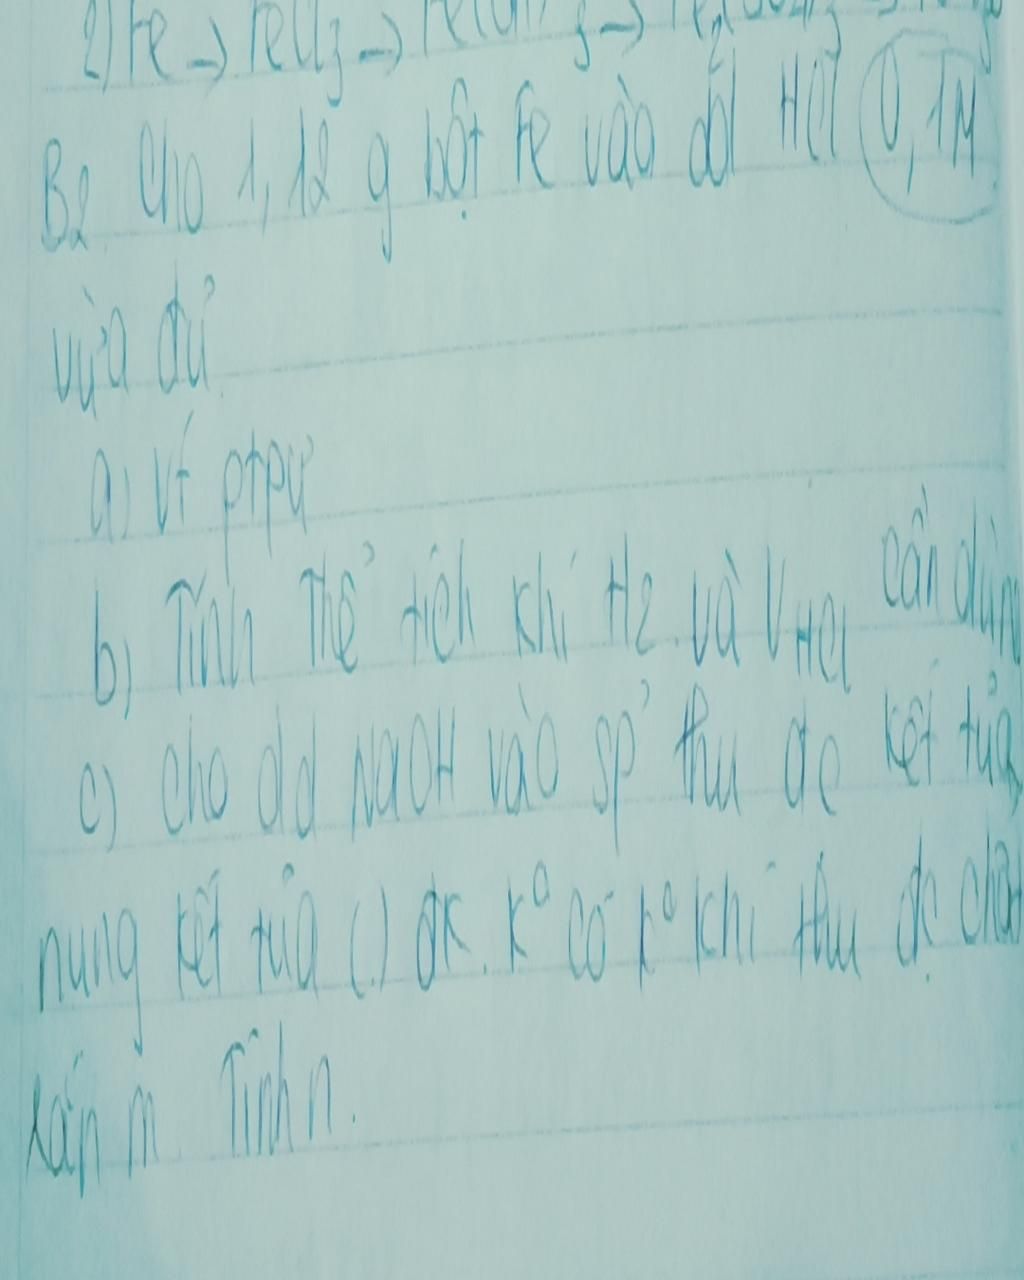 2) Fe → FeCl3 →
B2. Cho 1,12 g bột Fe vào dd HCl 0,1M
vừa đủ
a) Vt ptpư
b) Tính Thể tích khí H2 và VHCl cần dùng
c) cho dd NaOH vào sp thu đc kết tủa,
nung kết tủa (.) đk. ko có ko khí thu đc chất
rắn m Tính n.